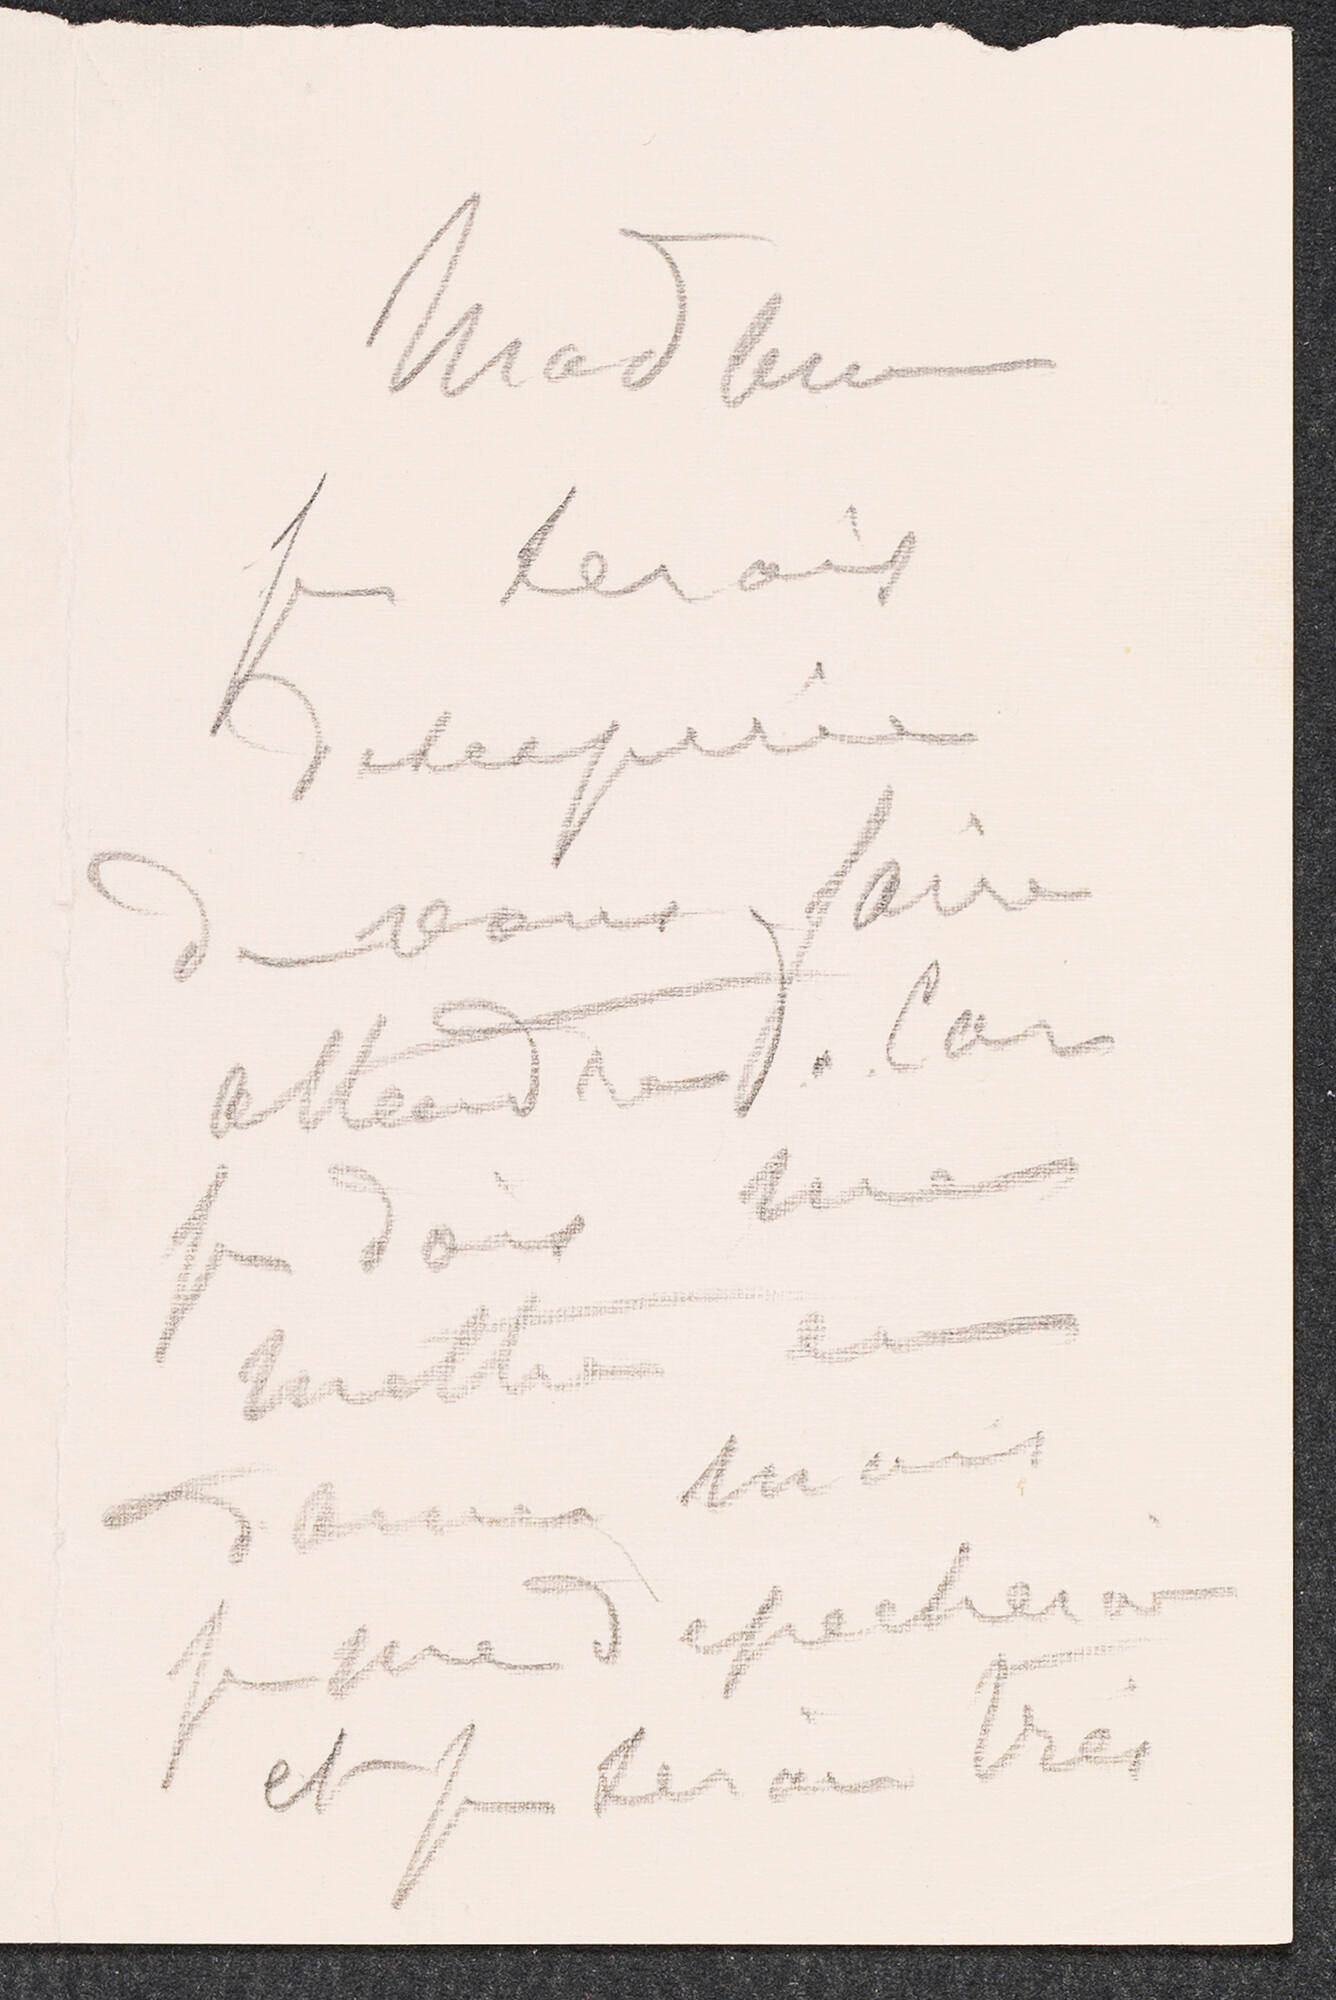 Madame
je serais
desesperée
de vous faire
attendre. Car
je dois me
mettre en
mais
je me depecherai
et je serais très